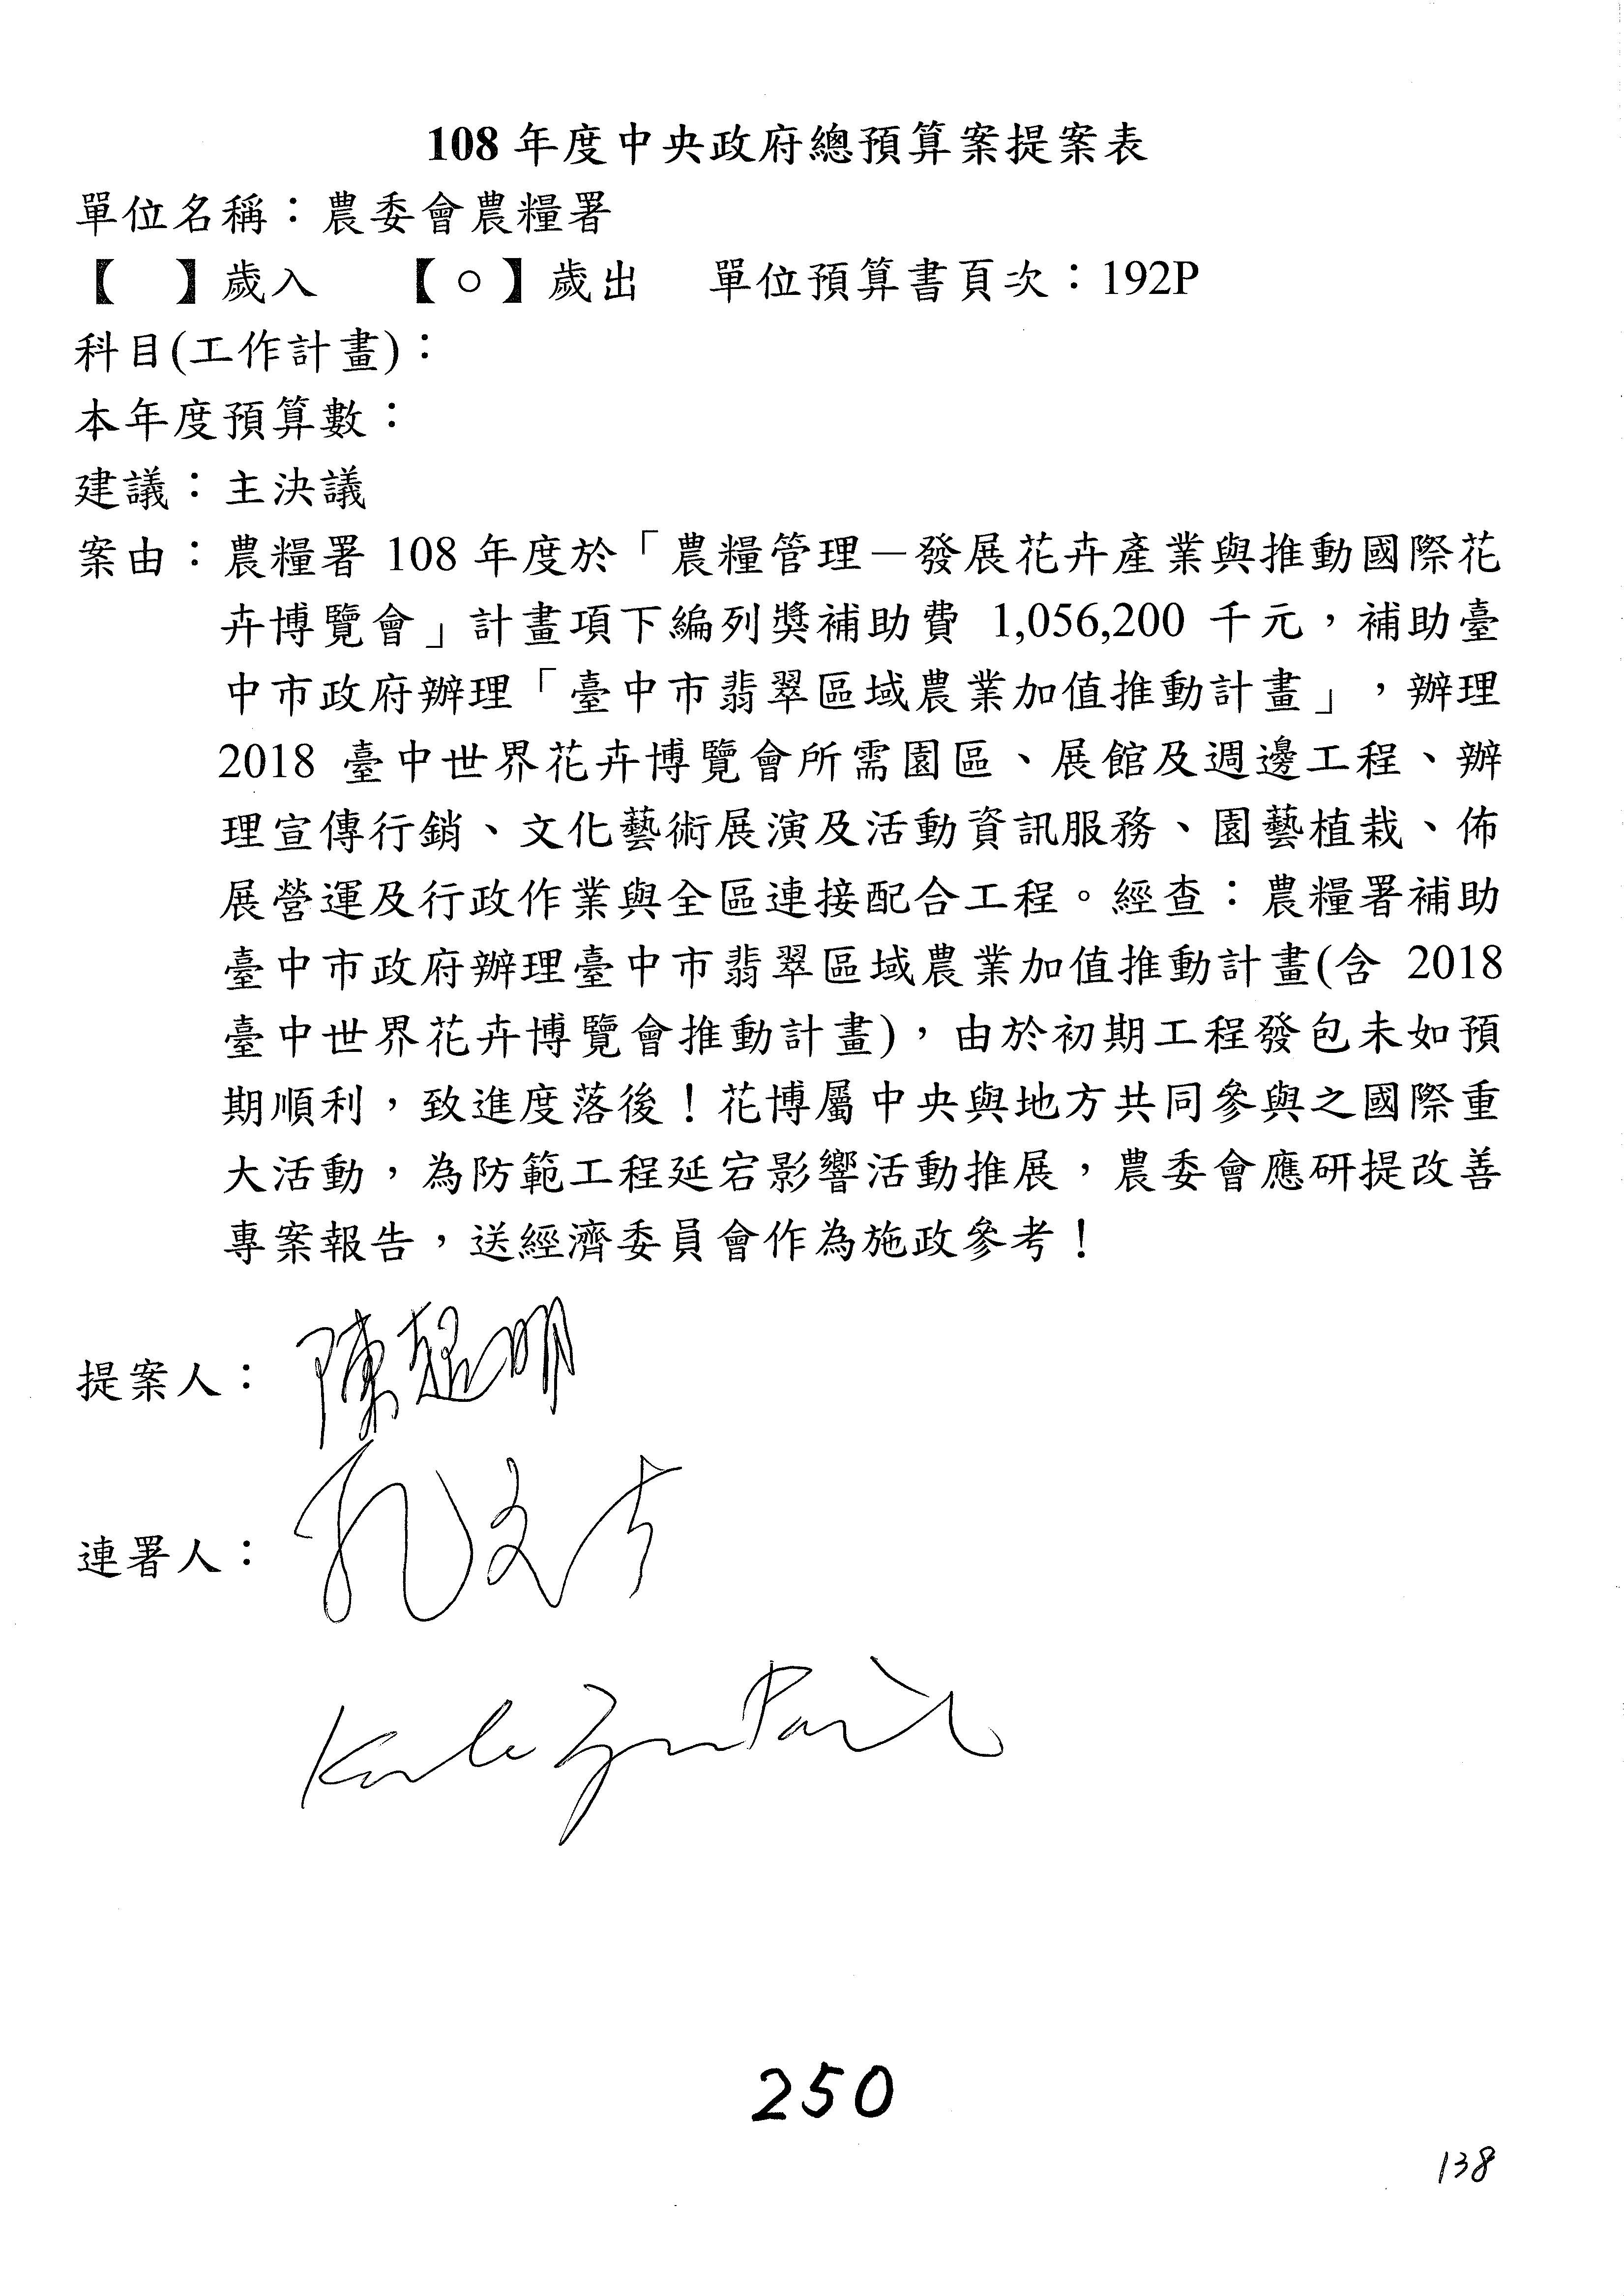 108 年度中央政府總預算案提案表
單位名稱：農委會農糧署
【　】歲入　【○】歲出　單位預算書頁次：192P
科目(工作計畫)：
本年度預算數：
建議：主決議
案由：農糧署 108 年度於「農糧管理－發展花卉產業與推動國際花
卉博覽會」計畫項下編列獎補助費 1,056,200 千元，補助臺
中市政府辦理「臺中市翡翠區域農業加值推動計畫」，辦理
2018 臺中世界花卉博覽會所需園區、展館及週邊工程、辦
理宣傳行銷、文化藝術展演及活動資訊服務、園藝植栽、佈
展營運及行政作業與全區連接配合工程。經查：農糧署補助
臺中市政府辦理臺中市翡翠區域農業加值推動計畫(含 2018
臺中世界花卉博覽會推動計畫)，由於初期工程發包未如預
期順利，致進度落後！花博屬中央與地方共同參與之國際重
大活動，為防範工程延宕影響活動推展，農委會應研提改善
專案報告，送經濟委員會作為施政參考！
提案人：陳超明
連署人：孔文吉
250
138